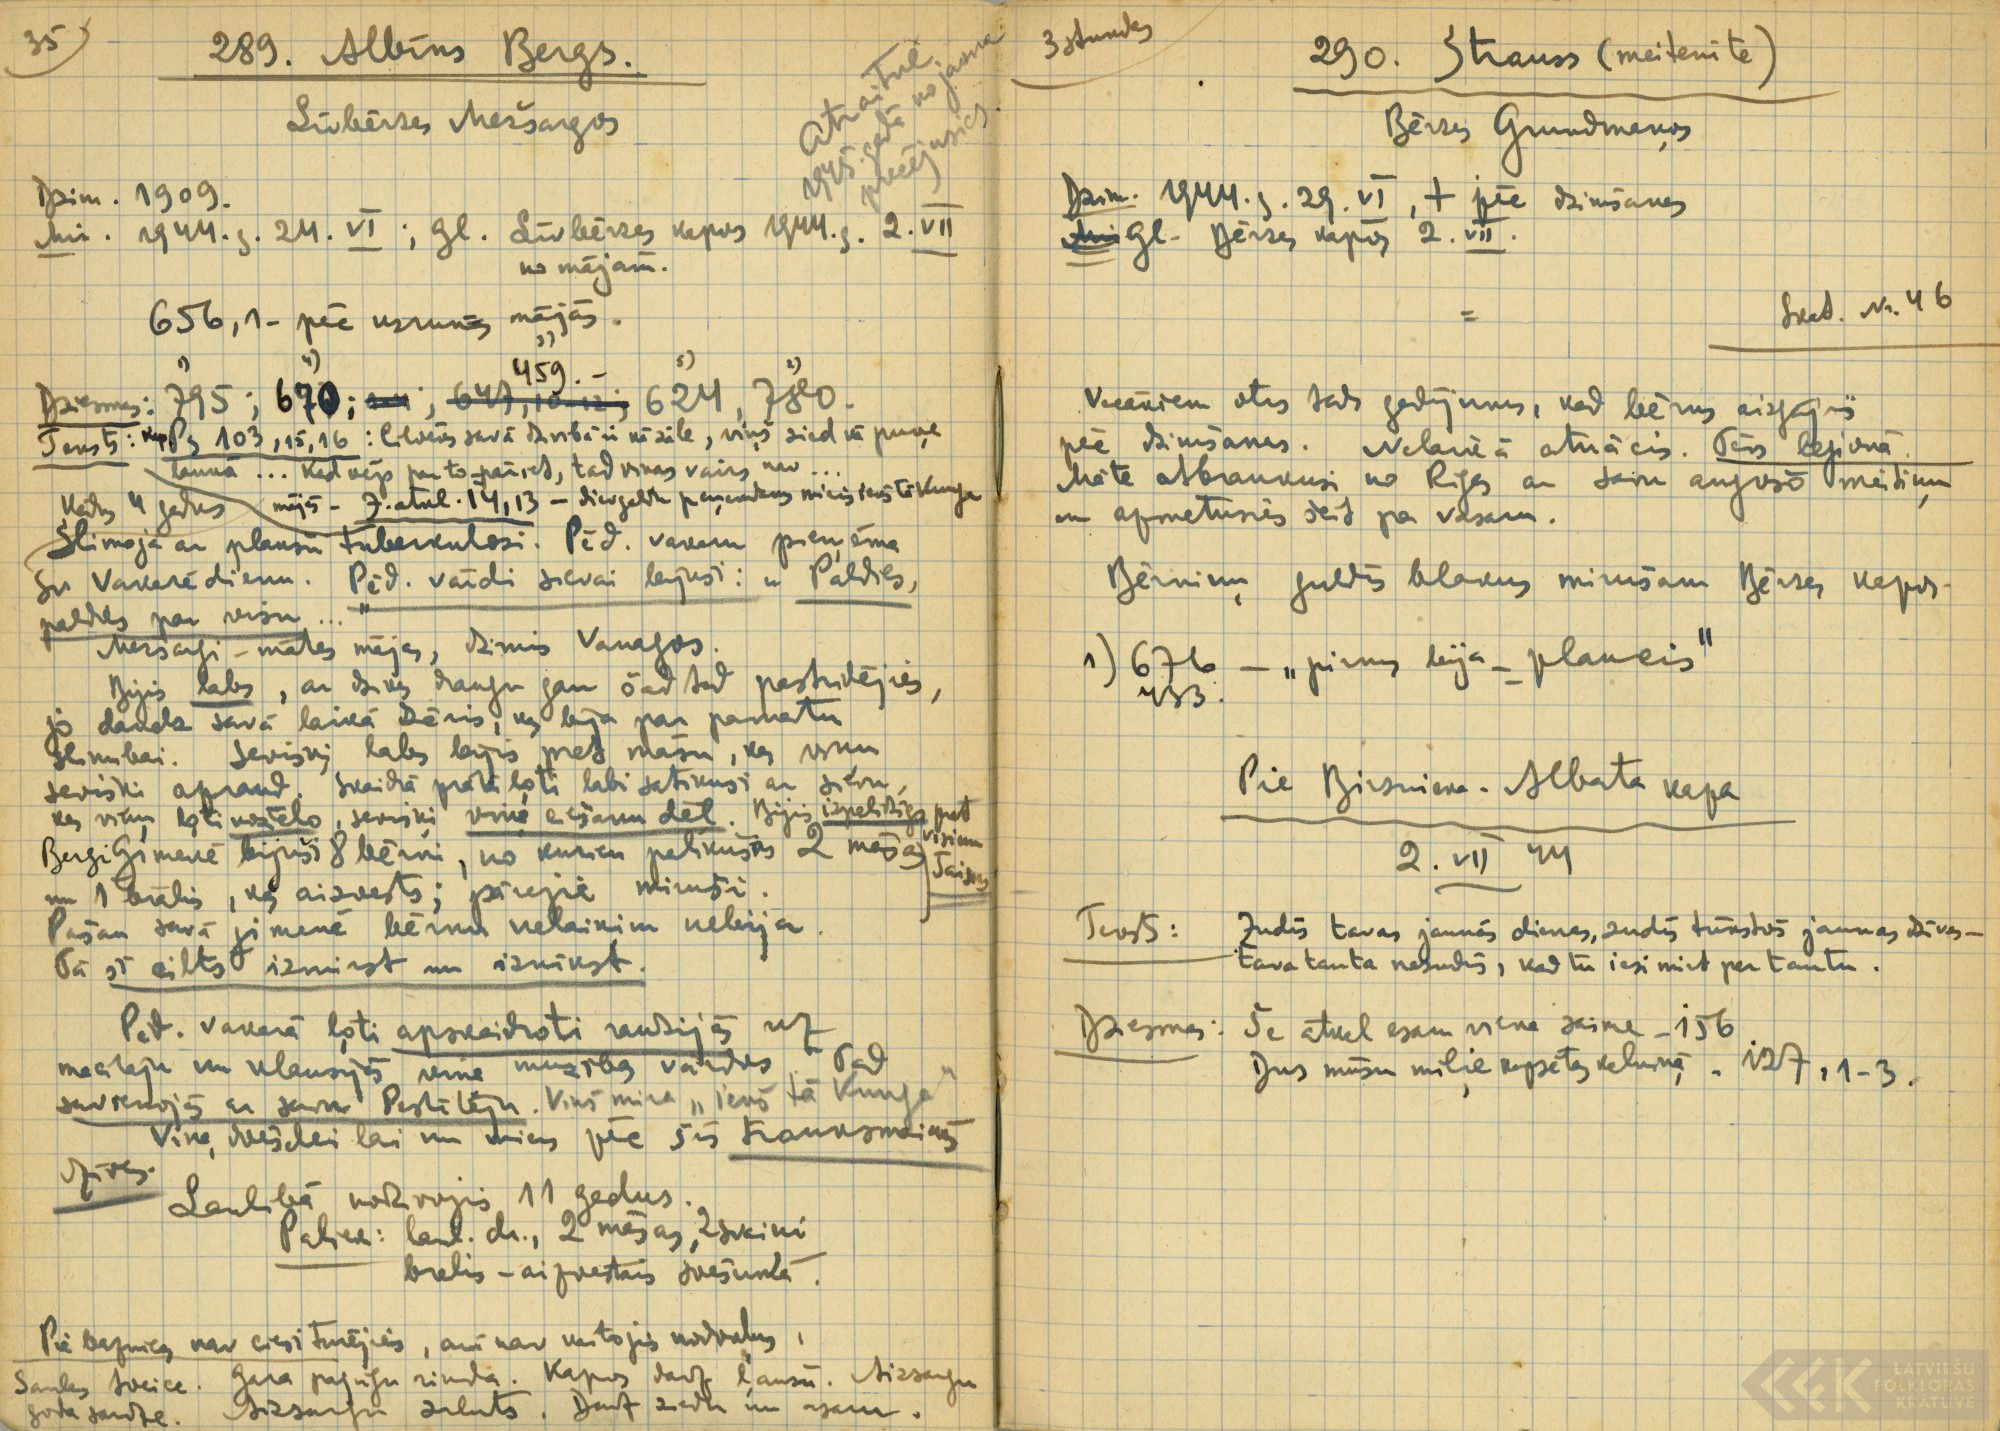 35
289. Albīns Bergs.
Līvbērzes Mežsargos
Atraitne
1945. gadā no jauna
precējusies
Dzim. 1909.
Mir. 1944. g. 24. VI ; Gl. Līvbērzes kapos 1944. g. 2. VII
no mājām.
656,1 – pēc uzrunas mājās.
1) 4) 3) 5) 2)
459. –
Dziesmas: 795; 670; 624, 780.
Teksts: kap. Ps 103, 15, 16 : Cilvēks savā dzīvībā ir kā zāle, viņš zied kā puķe
laukā ... Kad vējš par to pāriet, tad viņas vairs nav ...
mājā – J. atkl. 14, 13 –
Kādus 4 gadus
Slimoja ar plaušu tuberkulosi. Pēd. vakaru pieņēma
Sv Vakarēdienu. Pēd. vārdi sievai bijuši: „Paldies,
paldies par visu ..."
Mežsargi – mātes mājas, dzimis Vanagos.
Bijis labs, ar dzīves draugu gan šad tad pastrīdējies,
jo daudz savā laikā dzēris, kas bija par pamatu
slimībai. Sevišķi labs bijis pret māsu, kas viņu
sevišķi apraud. Skaidrā prātā ļoti labi satikuši ar sievu,
kas viņu ļoti nožēlo, sevišķi viņa ciešanu dēļ. Bijis izpalīdzīgs pret
visiem
Bergi Ģimenē bijuši 8 bērni, no kuriem palikušas 2 māsas
un 1 brālis, kas aizvests; pārējie miruši.
Pašam savā ģimenē bērnu nelaiķim nebija.
Tā šī cilts izmirst un iznīkst.
Pēd. vakarā ļoti apskaidroti raudzījās uz
mācītāju un klausījās viņa mūzības vārdos. Tad
savienojās ar savu Pestītāju. Viņš mira „iekš tā Kunga"
Viņa dvēselei lai nu miers pēc šīs trauksmainās
dzīves.
Laulībā nodzīvojis 11 gadus.
Paliek: laul. dr., 2 māsas, 2 svaiņi
brālis – aizvestais svešumā.
Pie baznīcas nav cieši turējies, arī nav kārtojis nodokļus,
Saules sveice. Gara pajūgu rinda. Kapos daudz ļaužu. Aizsargu
goda sardze. Aizsargu salūts. Daudz ziedu un asaru.
3 stundas
290. Strauss (meitenīte)
Bērzes Grundmaņos
Dzim. 1944. g. 29. VI, + pēc dzimšanas
Gl – Bērzes kapos 2. VII.
=
Skat. Nr. 46
Vecākiem otrs tāds gadījums, kad bērns aizgājis
pēc dzimšanas. Nelaikā atnācis. Tēvs leģionā.
Māte atbraukusi no Rīgas ar savu augošo meitiņu
un apmetusies šeit pa vasaru.
Bērniņu guldīs blakus mirušam Bērzes kapos –
1) 676 – „pirms bija – plaucis"
433.
Pie Birznieka – Alberta kapa
2. VII 44
Teksts: Zudīs tavas jaunās dienas, zudīs tūkstoš jaunas dzīves –
tava tauta nezudīs, kad tu iesi mirt par tautu.
Dziesmas: Še atkal esam viena saime – 156
Dus mūsu mīļie kapsētas kalniņā – 127, 1–3.
LATVIEŠU
FOLKLORAS
KRĀTUVE